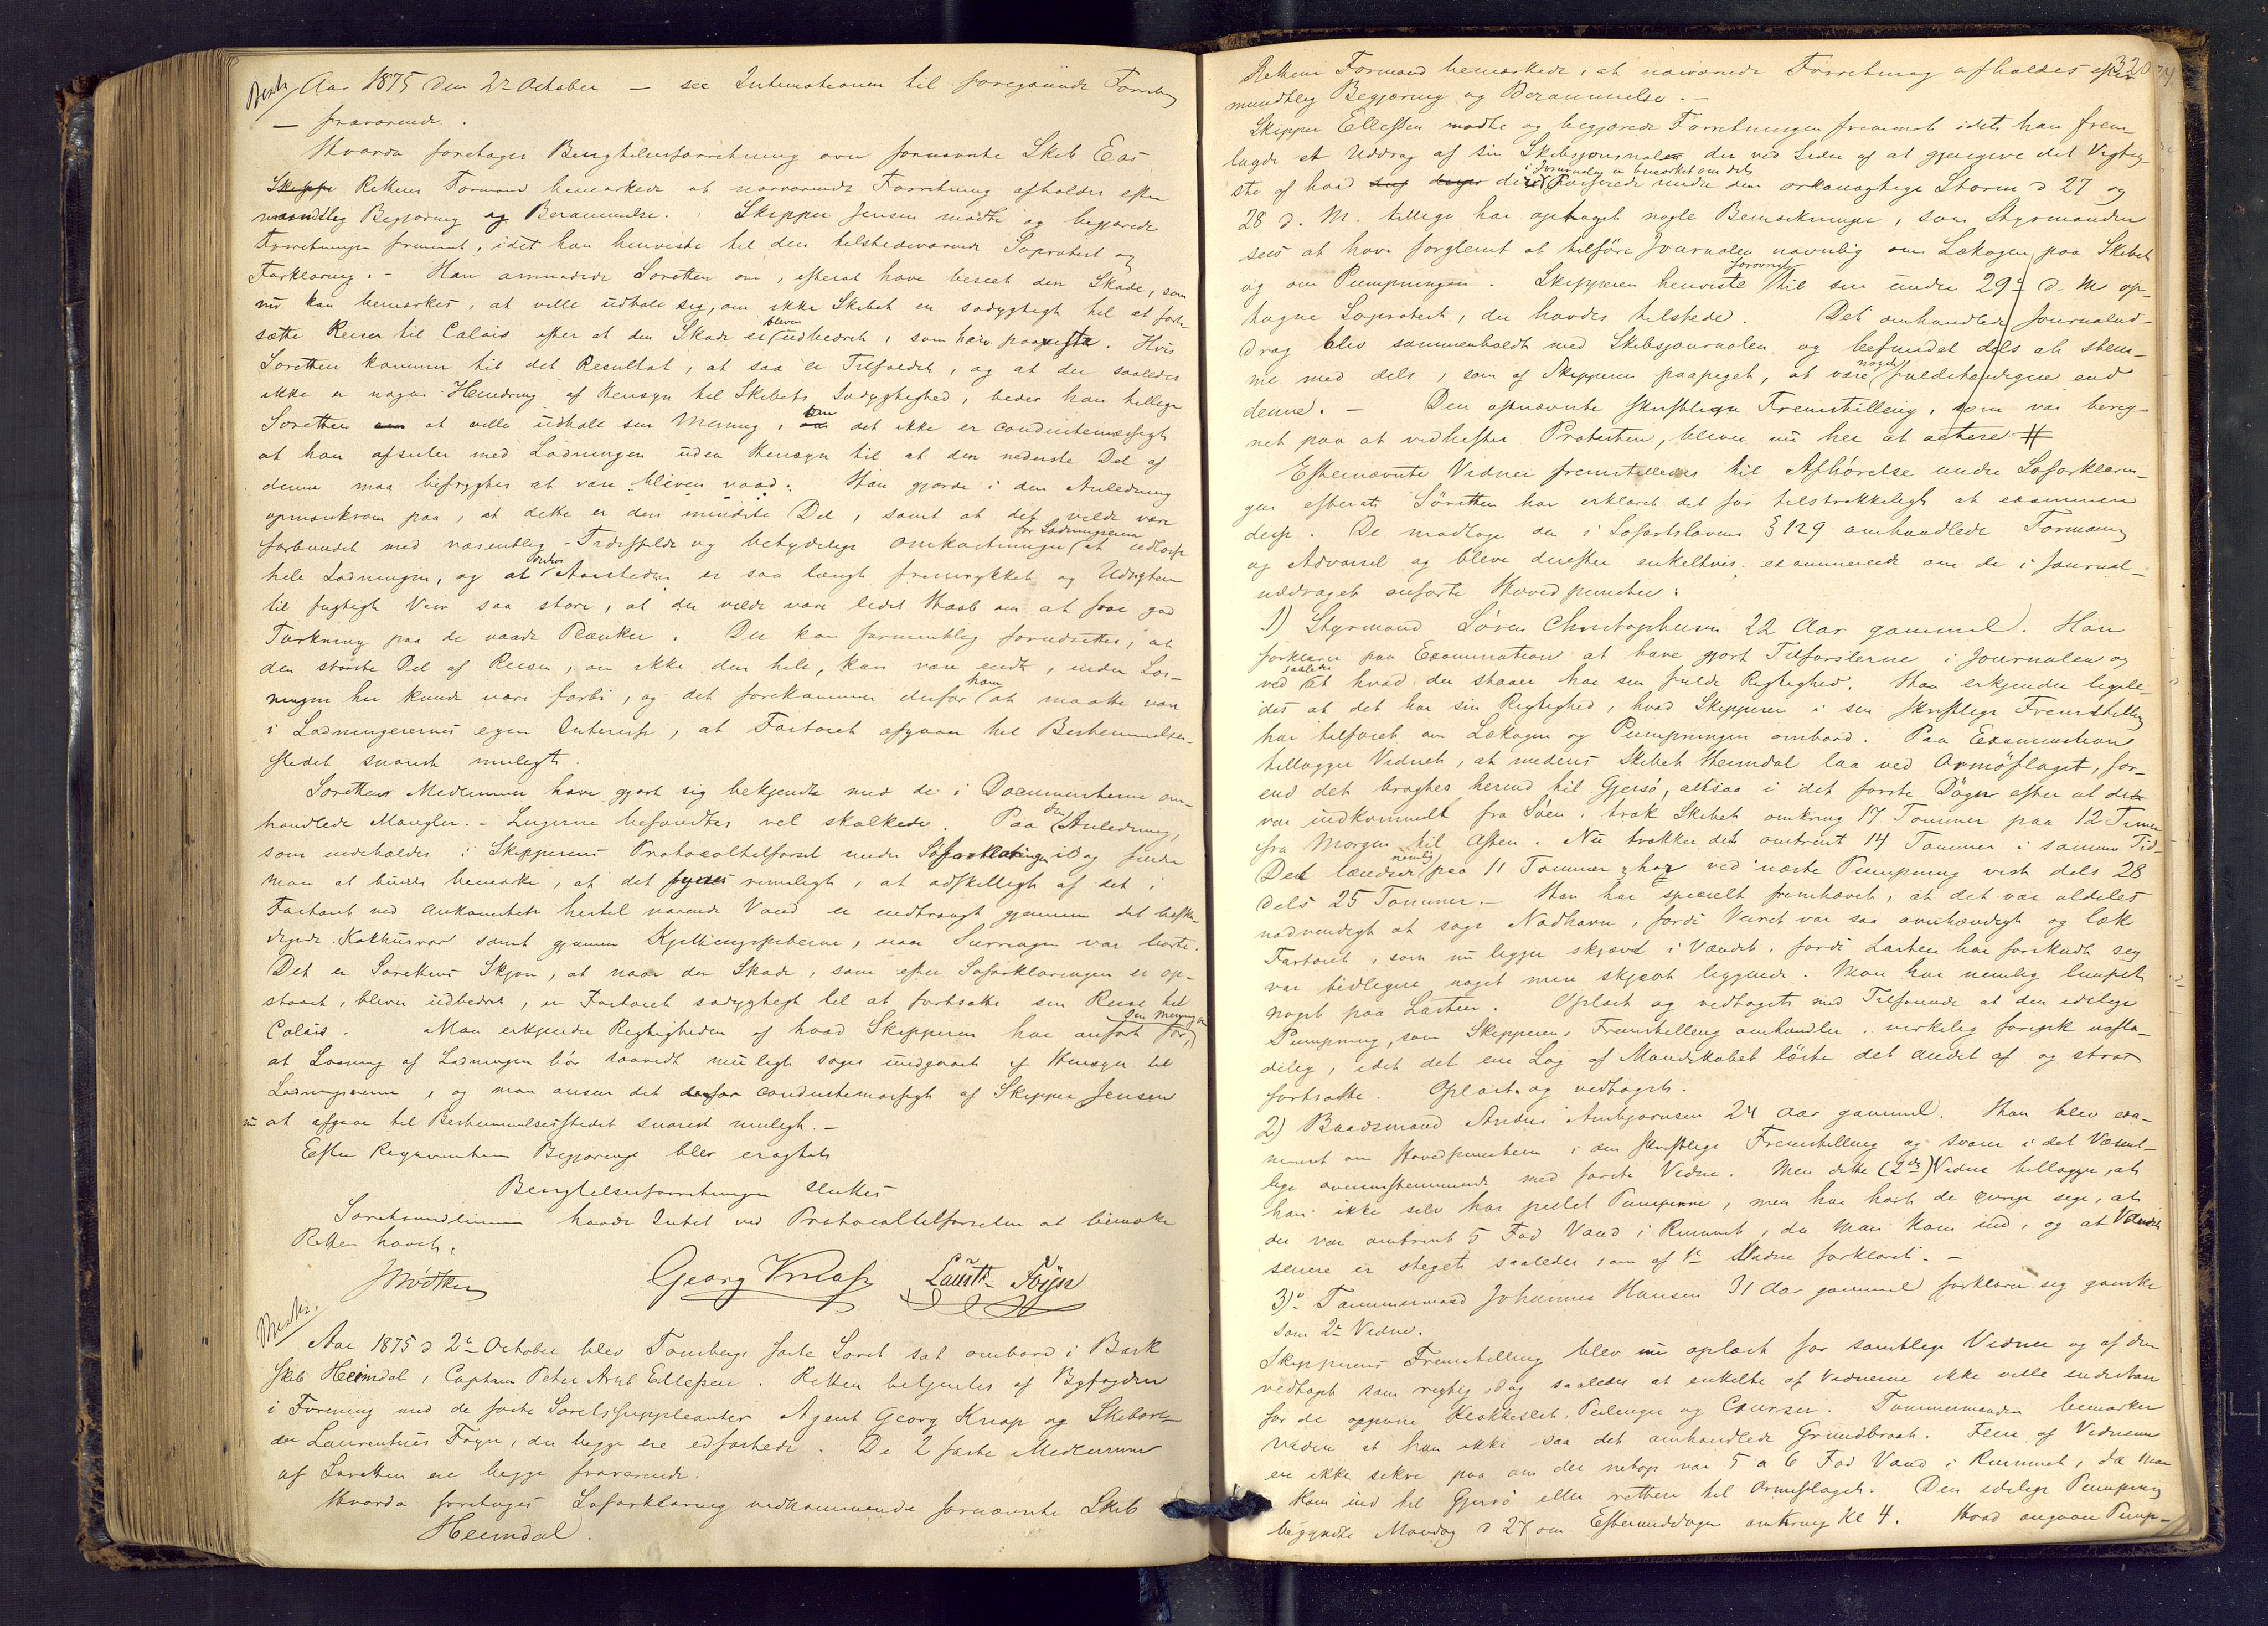 Besk. Aar 1875 den 2den October — see Intimationen til foregaaende Forretning
— fraværende.
Hvorda foretages Besigtelsesforretning over fornævnte Skib Eos
Skipper Rettens Formand bemærkede at nærværende Forretning afholdes efter
mundtlig Begjæring og Berammelse. Skipper Jensen mødte og begjærede
Forretningen fremmet, idet han henviste til den tilstedeværende Søprotest og
Forklaring. - Han anmodede Søretten om, efterat have beseet den Skade, som
nu kan bemærkes, at ville udtale sig, om ikke Skibet er sødygtigt til at fort-
sætte Reisen til Calais efter at den Skade er bleven udbedret, som her paavistes. Hvis
Søretten kommer til det Resultat, at saa er Tilfældet, og at der saaledes
ikke er nogen Hindring af Hensyn til Skibets Sødygtighed, beder han tillige
Søretten om at ville udtale sin Mening, om det ikke er conduitemæssigt
at han afseiler med Ladningen uden Hensyn til at den nederste Del af
denne maa befrygtes at være bleven vaad. Han gjorde i den Anledning
opmærksom paa, at dette er den mindste Del, samt at det vilde være
forbundet med væsentlig Tidsspilde og betydelige Omkostninger for Ladningseierne at udlosse
hele Ladningen, og at Aarstiden er saa langt fremrykket og Udsigten
til fugtigt Veir saa store, at der vilde være lidet Haab om at faae god
Tørkning paa de vaade Planker. Der kan formentlig forudsættes, at
den største Del af Reisen, om ikke den hele, kan være endt, inden Los-
ningen her kunde være forbi, og det forekommer derfor ham at maatte være
i Ladningseiernes egen Interesse, at Fartøiet afgaar til Bestemmelses-
stedet snarest muligt.
Sørettens Medlemmer have gjort sig bekjendte med de i Documenterne om-
handlede Mangler. - Lugerne befandtes vel skalkede. Paa den Anledning,
som indeholdes i Skipperens Protocoltilførsel under Søforklaringen idag finder
Man at burde bemærke, at det synes rimeligt, at adskilligt af det i
Fartøiet ved Ankomsten hertil værende Vand er indtrængt gjennem det beska-
digede Kakhusrør samt gjennem Kjettingspiberne, naar Surringen var borte.
Det er Sørettens Skjøn, at naar den Skade, som efter Søforklaringen er op-
staaet, bliver udbedret, er Fartøiet sødygtigt til at fortsætte sin Reise til
Calais. Man erkjender Rigtigheden af hvad Skipperen har anført for sin Mening om
at Losning af Ladningen bør saavidt muligt søges undgaaet af Hensyn til
Ladningseierne, og man anser det derfor conduitemæssigt af Skipper Jensen
nu at afgaae til Bestemmelsesstedet snarest muligt. -
Efter Reqvirentens Begjæring blev eragtet
Besigtelsesforretningen sluttet
Søretsmedlemmerne havde Intet ved Protocoltilførselen at bemærke
Retten hævet.
Georg Knap Laurts Føyn
Besk.
Aar 1875 d 2den October blev Tønsbergs faste Søret sat ombord i Bark
skib Heimdal, Captain Peter Arnt Ellefsen. Retten betjentes af Byfogden
i Forening med de faste Søretssuppleanter Agent Georg Knap og Skibsre-
der Laurentius Føyn, der begge ere edfæstede. De 2 faste Medlemmer
af Søretten ere begge fraværende.
Hvorda foretages Søforklaring vedkommende fornævnte Skib
Heimdal.
320
Rettens Formand bemærkede, at nærværende Forretning afholdes efter
mundtlig Begjæring og Berammelse. —
Skipper Ellefsen mødte og begjærede Forretningen fremmet idet han frem-
lagde et Uddrag af sin Skibsjournal der ved Siden af at gjengive det Vigtig-
ste af hvad i Journalen er bemærket om det passerede under den orkanagtige Storm d 27 og
28 d. M. tillige har optaget nogle Bemærkninger, som Styrmanden
sees at have forglemt at tilføre Journalen navnlig om Lækagen paa Skibet
og om Pumpningen. Skipperen henviste forøvrigt til sin under 29de d. M op-
tagne Søprotest, der havdes tilstede. Det omhandlede Journalud-
drag blev sammenholdt med Skibsjournalen og befandtes dels at stem-
me med dels, som af Skipperen paapeget, at være noget fuldstændigere end
denne. — Den ofnævnte skriftlige Fremstilling, som var bereg-
net paa at vedhæftes Protesten, bliver nu her at actere #
Efternævnte Vidner fremstilledes til Afhørelse under Søforklarin-
gen efterat Søretten har erklæret det for tilstrækkeligt at examinere
disse. De modtoge den i Søfartslovens § 129 omhandlede Formaning
og Advarsel og bleve derefter enkeltvis examinerede om de i Journal-
uddraget anførte Hovedpuncter:
1) Styrmand Søren Christophersen 22 Aar gammel. Han
forklarer paa Examination at have gjort Tilførslerne i Journalen og
ved saaledes at hvad der staaer har sin fulde Rigtighed. Han erkjender ligele-
des at det har sin Rigtighed, hvad Skipperen i sin skriftlige Fremstilling
har tilføiet om Lækagen og Pumpningen ombord. Paa Examination
tillægger Vidnet, at medens Skibet Heimdal laa ved Ormøflaget, før-
end det bragtes herind til Gjersø, altsaa i det første Døgn efter at det
var indkommet fra Søen, trak Skibet omkring 17 Tommer paa 12 Timer
fra Morgen til Aften. Nu trækker det omtrent 14 Tommer i samme Tid.
Det lændses nemlig paa 11 Tommer og har ved næste Pumpning vist dels 28
dels 25 Tommer. - Han har specielt fremhævet, at det var aldeles
nødvendigt at søge Nødhavn, fordi Veiret var saa umistændigt og læk
Fartøiet, som nu ligger skjævt i Vandet, fordi Lasten har forskudt sig
var tidligere noget mere skjævt liggende. Man har nemlig lempet
noget paa Lasten. Oplæst og vedtaget med Tilføiende at den idelige
Pumpning, som Skipperens Fremstilling omhandler, virkelig foregik uafla-
delig, idet det ene Lag af Mandskabet løste det andet af og strax
fortsatte. Oplæst og vedtaget.
2) Baadsmand Anders Ambjørnsen 24 Aar gammel. Han blev exa-
mineret om Hovedpuncterne i den skriftlige Fremstilling og svarer i det Væsent-
lige overensstemmende med første Vidne. Men dette (2det) Vidne tillægger, at
han ikke selv har peilet Pumperne, men har hørt de øvrige sige, at
der var omtrent 5 Fod Vand i Rummet, da Man kom ind, og at Vandet
senere er steget saaledes som af 1ste Vidne forklaret. —
3)o Tømmermand Johannes Hansen 31 Aar gammel forklarer sig ganske
som 2det Vidne.
Skipperens Fremstilling blev nu oplæst for samtlige Vidner og af dem
vedtaget som rigtig, dog saaledes at enkelte af Vidnerne ikke ville indestaae
for de opgivne Klokkeslet, Peilinger og Courser. Tømmermanden bemærker
videre at han ikke saa det omhandlede Grundbraat. Flere af Vidnerne
ere ikke sikre paa om der netop var 5 a 6 Fod Vand i Rummet, da Man
kom ind til Gjersø eller rettere til Ormøflaget. Den idelige Pumpning
begyndte Mandag d 27 om Eftermiddagen omkring Kl 4. Hvad angaaer Pump-